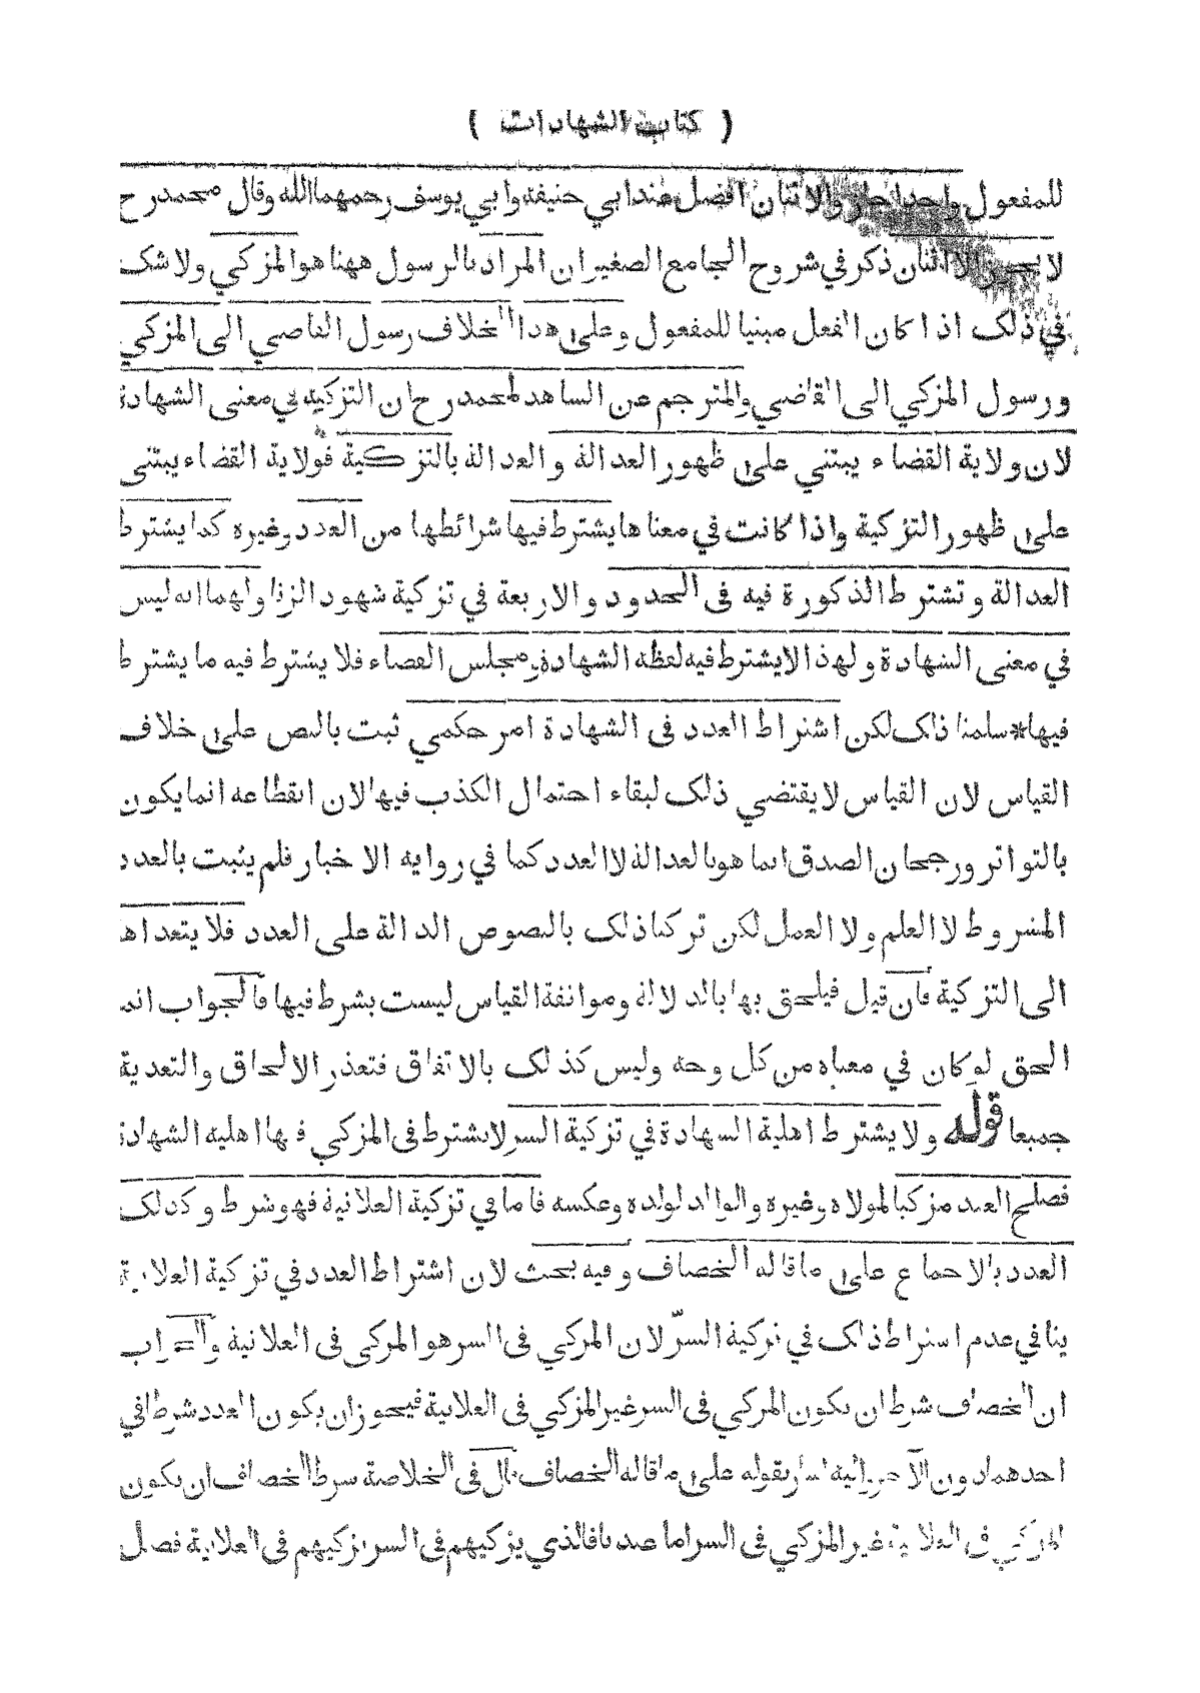 ( كتاب الشهادات )
للمفعول واحدا جاز والاثنان افضل عند ابي حنيفة وابي يوسف رحمهما الله وقال محمد رح
لا يجوز الا اثنان ذكر في شروح الجامع الصغير ان المراد بالرسول ههنا هو المزكي ولا شك
في ذلك اذا كان الفعل مبنيا للمفعول وعلى هذا الخلاف رسول القاضي الى المزكي
ورسول المزكي الى القاضي والمترجم عن الشاهد لمحمد رح ان التزكية في معنى الشهادة
لان ولاية القضاء يبتني على ظهور العدالة والعدالة بالتزكية فولاية القضاء يبتنى
على ظهور التزكية واذا كانت في معناها يشترط فيها شرائطها من العدد وغيره كما يشترط
العدالة وتشترط الذكورة فيه فى الحدود والاربعة في تزكية شهود الزنا ولهما انه ليس
في معنى الشهادة ولهذا لا يشترط فيه لفظه الشهادة ومجلس القضاء فلا يشترط فيه ما يشترط
فيها * سلمنا ذلك لكن اشتراط العدد فى الشهادة امر حكمي ثبت بالنص على خلاف
القياس لان القياس لا يقتضي ذلك لبقاء احتمال الكذب فيها لان انقطاعه انما يكون
بالتواتر ورجحان الصدق انما هو بالعدالة لا العدد كما في رواية الاخبار فلم يثبت بالعدد
المشروط لا العلم ولا العمل لكن تركنا ذلك بالنصوص الدالة على العدد فلا يتعداها
الى التزكية فان قيل فيلحق بها بالدلالة وموافقة القياس ليست بشرط فيها فالجواب انما
الحق لو كان في معناه من كل وجه وليس كذلك بالاتفاق فتعذر الالحاق والتعدية
جميعا قوله ولا يشترط اهلية الشهادة في تزكية السر لا يشترط فى المزكي فيها اهلية الشهادة
فصلح العبد مزكيا لمولاه وغيره والوالد لولده وعكسه فاما في تزكية العلانية فهو شرط وكذلك
العدد بالاجماع على ما قاله الخصاف وفيه بحث لان اشتراط العدد في تزكية العلانية
ينافي عدم اشتراط ذلك في تزكية السر لان المزكي فى السر هو المزكى فى العلانية والجواب
ان الخصاف شرط ان يكون المزكي فى السر غير المزكي فى العلانية فيجوز ان يكون العدد شرطا في
احدهما دون الآخر واليه اشار بقوله على ما قاله الخصاف قال فى الخلاصة شرط الخصاف ان يكون
المزكي في العلانية غير المزكي فى السر اما عندنا فالذي يزكيهم فى السر يزكيهم فى العلانية فصل